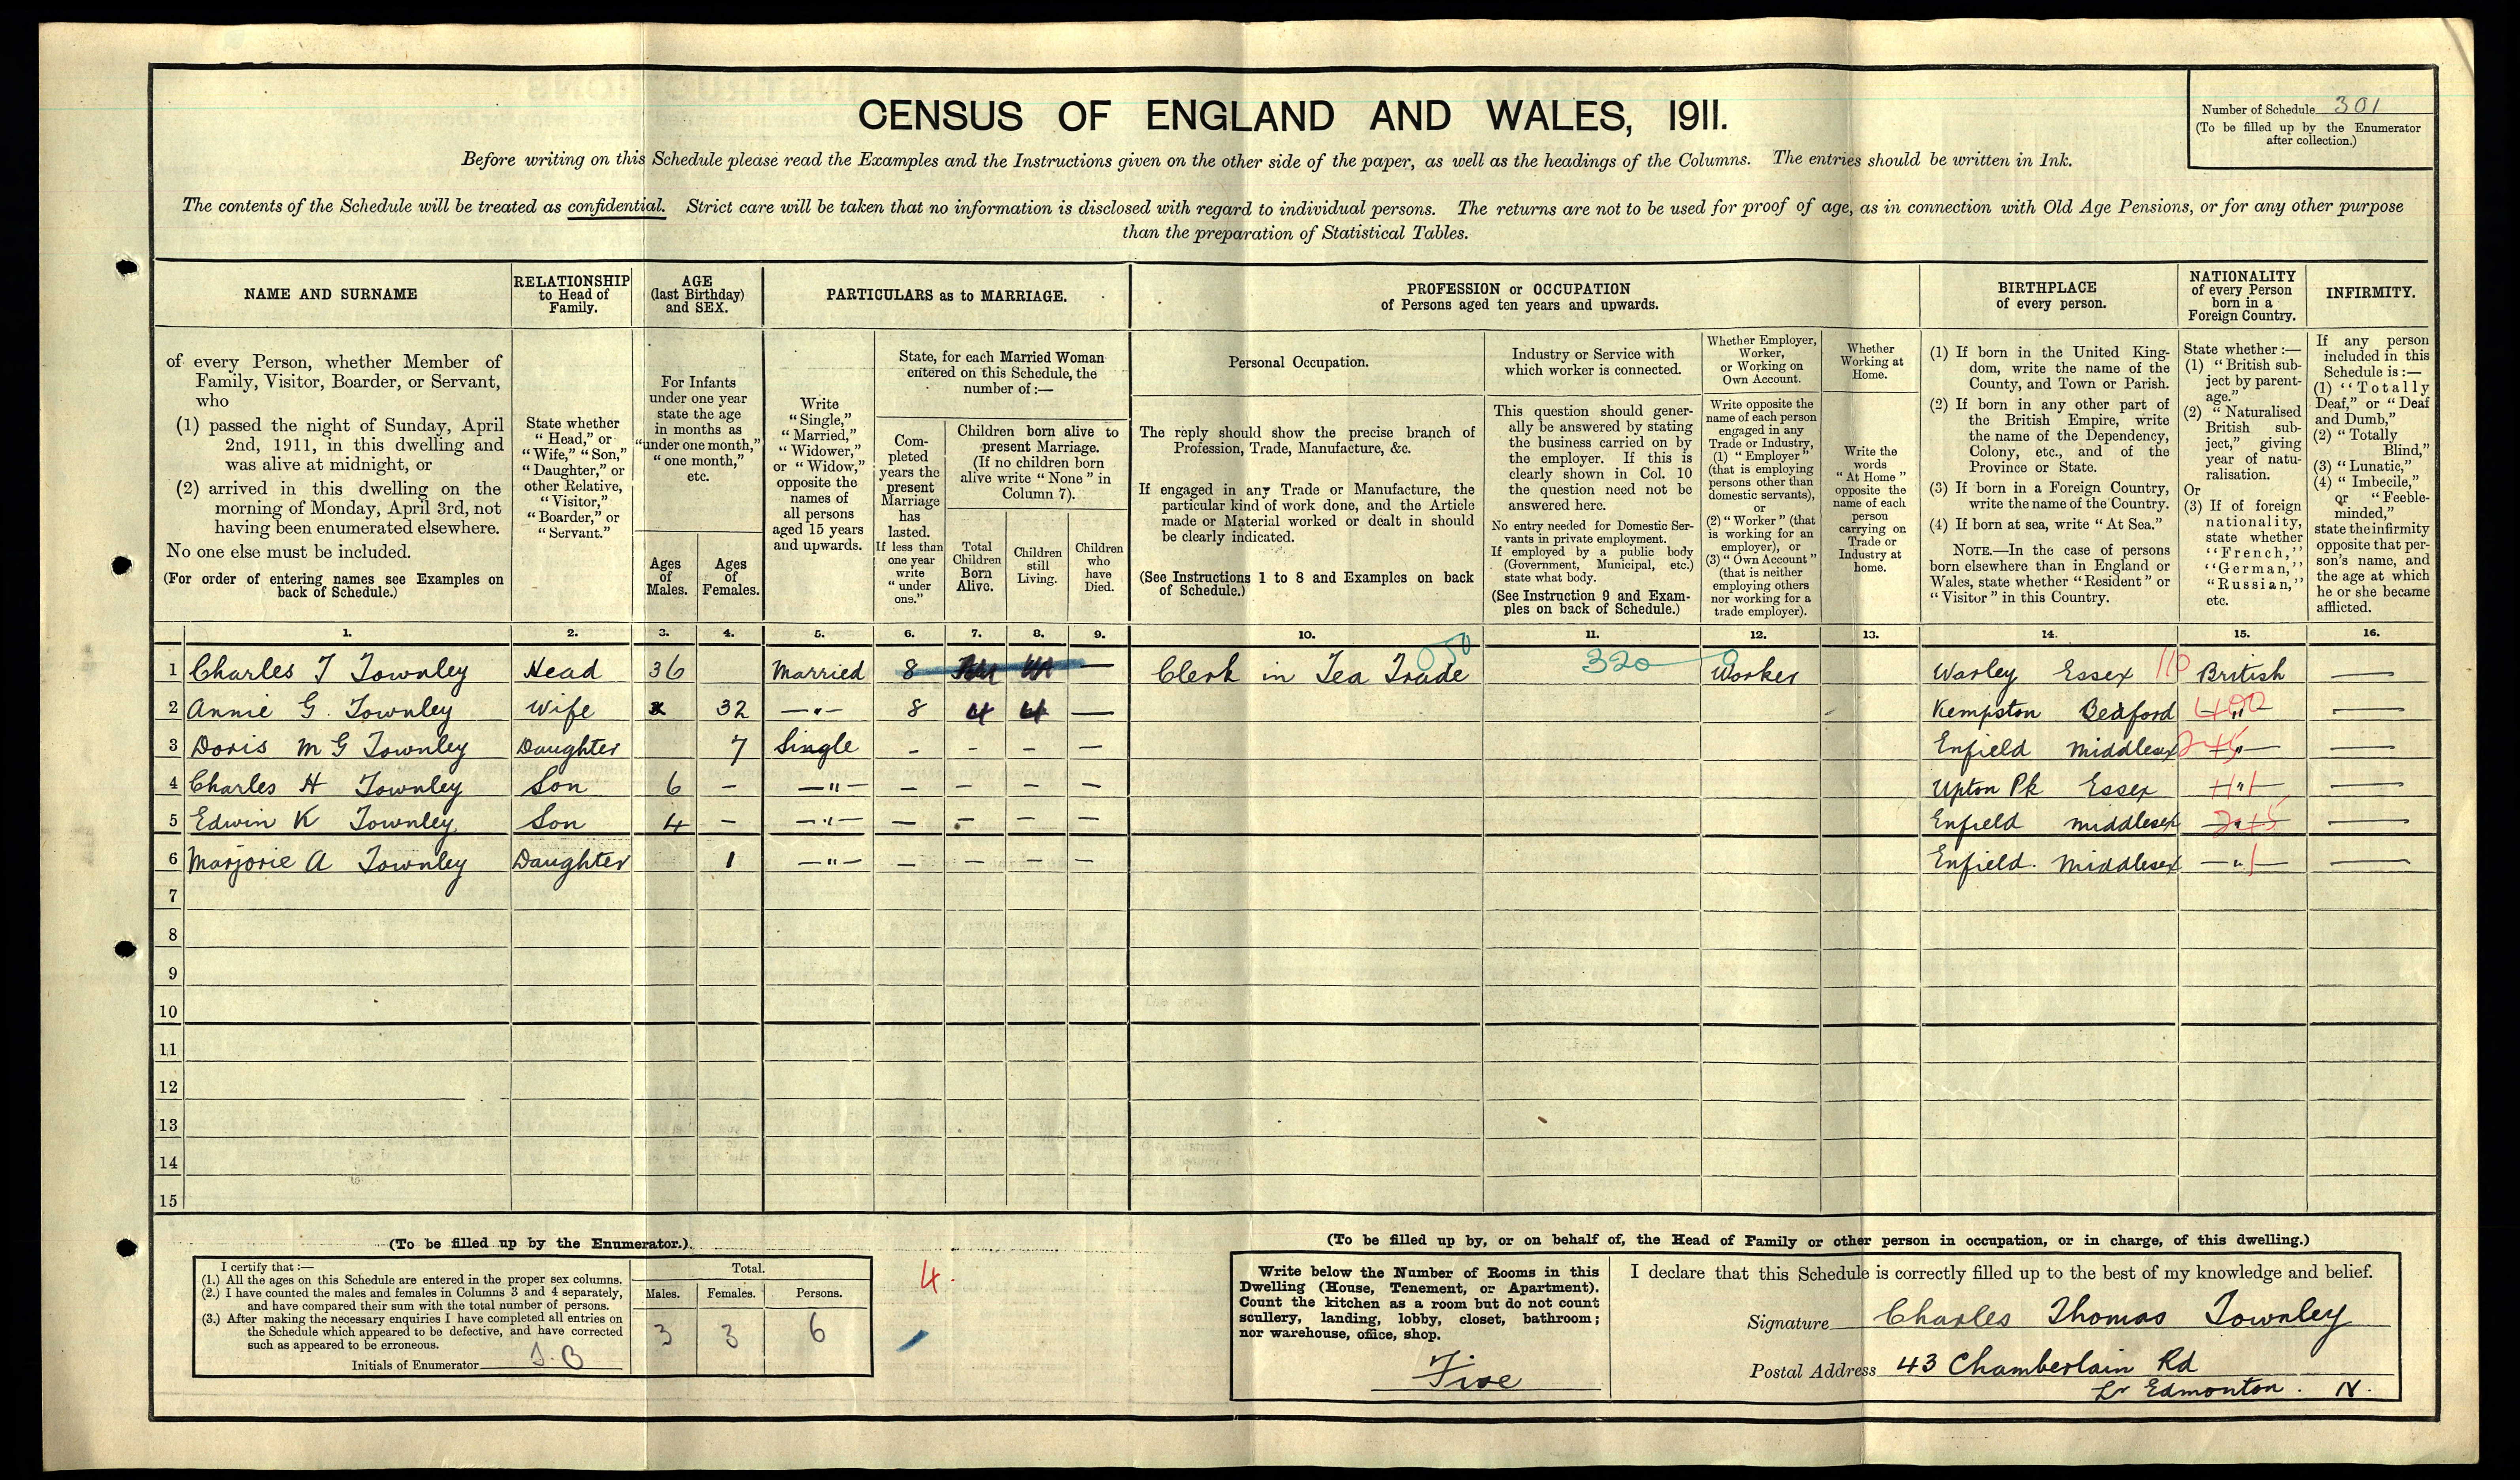 CENSUS OF ENGLAND AND WALES, 1911.
Number of Schedule 301
(To be filled up by the Enumerator
after collection.)
Before writing on this Schedule please read the Examples and the Instructions given on the other side of the paper, as well as the headings of the Columns. The entries should be written in Ink.
The contents of the Schedule will be treated as confidential. Strict care will be taken that no information is disclosed with regard to individual persons. The returns are not to be used for proof of age, as in connection with Old Age Pensions, or for any other purpose
than the preparation of Statistical Tables.
NAME AND SURNAME
of every Person, whether Member of
Family, Visitor, Boarder, or Servant,
who
(1) passed the night of Sunday, April
2nd, 1911, in this dwelling and
was alive at midnight, or
(2) arrived in this dwelling on the
morning of Monday, April 3rd, not
having been enumerated elsewhere.
No one else must be included.
(For order of entering names see Examples on
back of Schedule.)
1.
RELATIONSHIP
to Head of
Family.
State whether
"Head," or
"Wife," "Son,"
"Daughter," or
other Relative,
"Visitor,"
"Boarder," or
"Servant."
2.
AGE
(last Birthday)
and SEX.
For Infants
under one year
state the age
in months as
"under one month,"
"one month,"
etc.
Ages
of
Males.
3.
Ages
of
Females.
4.
PARTICULARS as to MARRIAGE.
Write
"Single,"
"Married,"
"Widower,"
or "Widow,"
opposite the
names of
all persons
aged 15 years
and upwards.
5.
State, for each Married Woman
entered on this Schedule, the
number of:—
Com-
pleted
years the
present
Marriage
has
lasted.
If less than
one year
write
"under
one."
6.
Children born alive to
present Marriage.
(If no children born
alive write "None" in
Column 7).
Total
Children
Born
Alive.
7.
Children
still
Living.
8.
Children
who
have
Died.
9.
PROFESSION or OCCUPATION
of Persons aged ten years and upwards.
Personal Occupation.
The reply should show the precise branch of
Profession, Trade, Manufacture, &c.
If engaged in any Trade or Manufacture, the
particular kind of work done, and the Article
made or Material worked or dealt in should
be clearly indicated.
(See Instructions 1 to 8 and Examples on back
of Schedule.)
10.
Industry or Service with
which worker is connected.
This question should gener-
ally be answered by stating
the business carried on by
the employer. If this is
clearly shown in Col. 10
the question need not be
answered here.
No entry needed for Domestic Ser-
vants in private employment.
If employed by a public body
(Government, Municipal, etc.)
state what body.
(See Instruction 9 and Exam-
ples on back of Schedule.)
11.
Whether Employer,
Worker,
or Working on
Own Account.
Write opposite the
name of each person
engaged in any
Trade or Industry,
(1) "Employer"
(that is employing
persons other than
domestic servants),
or
(2) "Worker" (that
is working for an
employer), or
(3) "Own Account"
(that is neither
employing others
nor working for a
trade employer).
12.
Whether
Working at
Home.
Write the
words
"At Home"
opposite the
name of each
person
carrying on
Trade or
Industry at
home.
13.
BIRTHPLACE
of every person.
(1) If born in the United King-
dom, write the name of the
County, and Town or Parish.
(2) If born in any other part of
the British Empire, write
the name of the Dependency,
Colony, etc., and of the
Province or State.
(3) If born in a Foreign Country,
write the name of the Country.
(4) If born at sea, write "At Sea."
NOTE.—In the case of persons
born elsewhere than in England or
Wales, state whether "Resident" or
"Visitor" in this Country.
14.
NATIONALITY
of every Person
born in a
Foreign Country.
State whether:—
(1) "British sub-
ject by parent-
age."
(2) "Naturalised
British sub-
ject," giving
year of natu-
ralisation.
Or
(3) If of foreign
nationality,
state whether
"French,"
"German,"
"Russian,"
etc.
15.
INFIRMITY.
If any person
included in this
Schedule is:—
(1) "Totally
Deaf," or "Deaf
and Dumb,"
(2) "Totally
Blind,"
(3) "Lunatic,"
(4) "Imbecile,"
or "Feeble-
minded,"
state the infirmity
opposite that per-
son's name, and
the age at which
he or she became
afflicted.
16.
1 Charles T Townley Head 36 Married 8 — Clerk in Tea Trade 050 320 Worker Warley Essex 110 British —
2 Annie G. Townley Wife 32 —"— 8 4 4 — Kempston Bedford 400 —"— —
3 Doris M G Townley Daughter 7 Single - - - — Enfield Middlesex 245 —"— —
4 Charles H Townley Son 6 - —"— — — — — Upton Pk Essex —"— —
5 Edwin K Townley Son 4 - —"— — — — — Enfield Middlesex 245 —"— —
6 Marjorie A Townley Daughter 1 —"— — — — — Enfield. Middlesex —"— —
7
8
9
10
11
12
13
14
15
(To be filled up by the Enumerator.)
I certify that:—
(1.) All the ages on this Schedule are entered in the proper sex columns.
(2.) I have counted the males and females in Columns 3 and 4 separately,
and have compared their sum with the total number of persons.
(3.) After making the necessary enquiries I have completed all entries on
the Schedule which appeared to be defective, and have corrected
such as appeared to be erroneous.
Initials of Enumerator
Total.
Males. Females. Persons.
3 3 6
4.
(To be filled up by, or on behalf of, the Head of Family or other person in occupation, or in charge, of this dwelling.)
Write below the Number of Rooms in this
Dwelling (House, Tenement, or Apartment).
Count the kitchen as a room but do not count
scullery, landing, lobby, closet, bathroom;
nor warehouse, office, shop.
Five
I declare that this Schedule is correctly filled up to the best of my knowledge and belief.
Signature Charles Thomas Townley
Postal Address 43 Chamberlain Rd
Lr Edmonton. N.